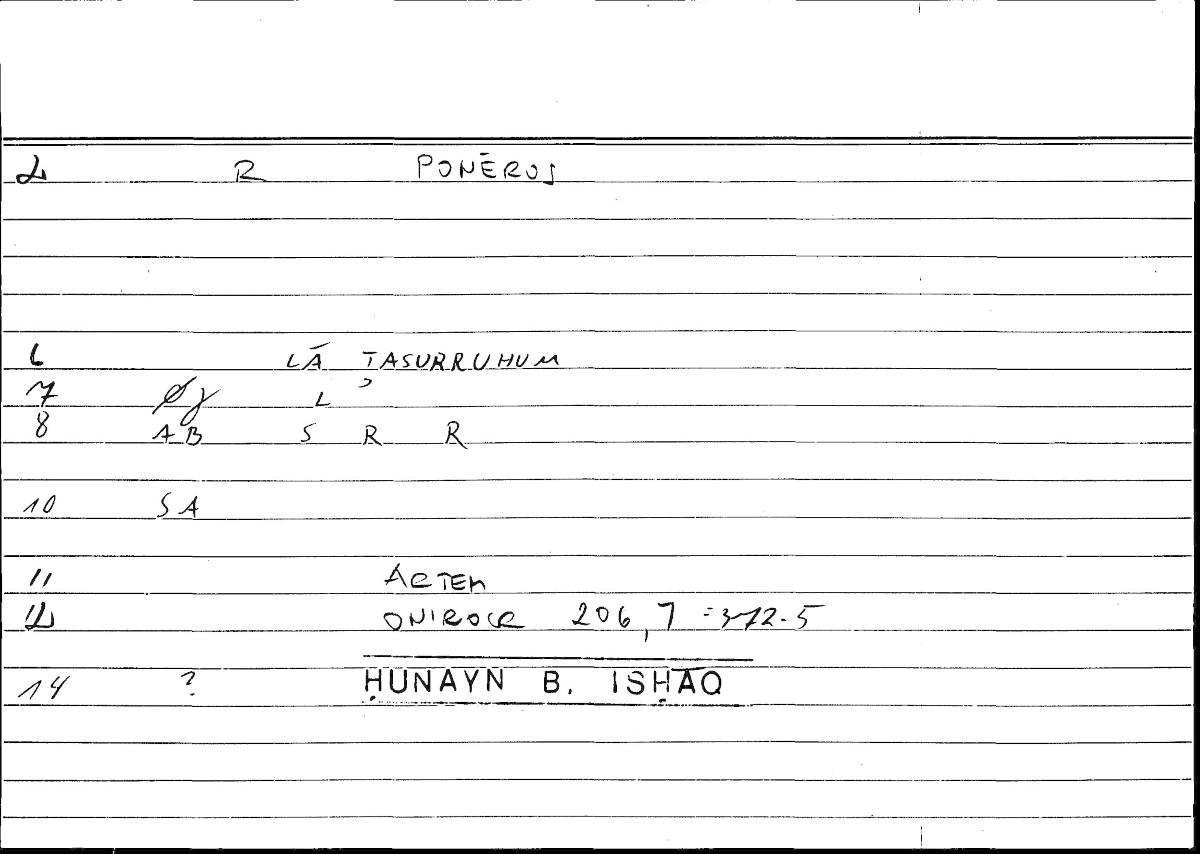 2 R PONĒROS
6 LĀ TASURRUHUM
7 L ʾ
8 AB S R R
10 SA
11 ARTEM
12 ONIROCR 206,7 = 372.5
14 ? ḤUNAYN B. ISḤĀQ